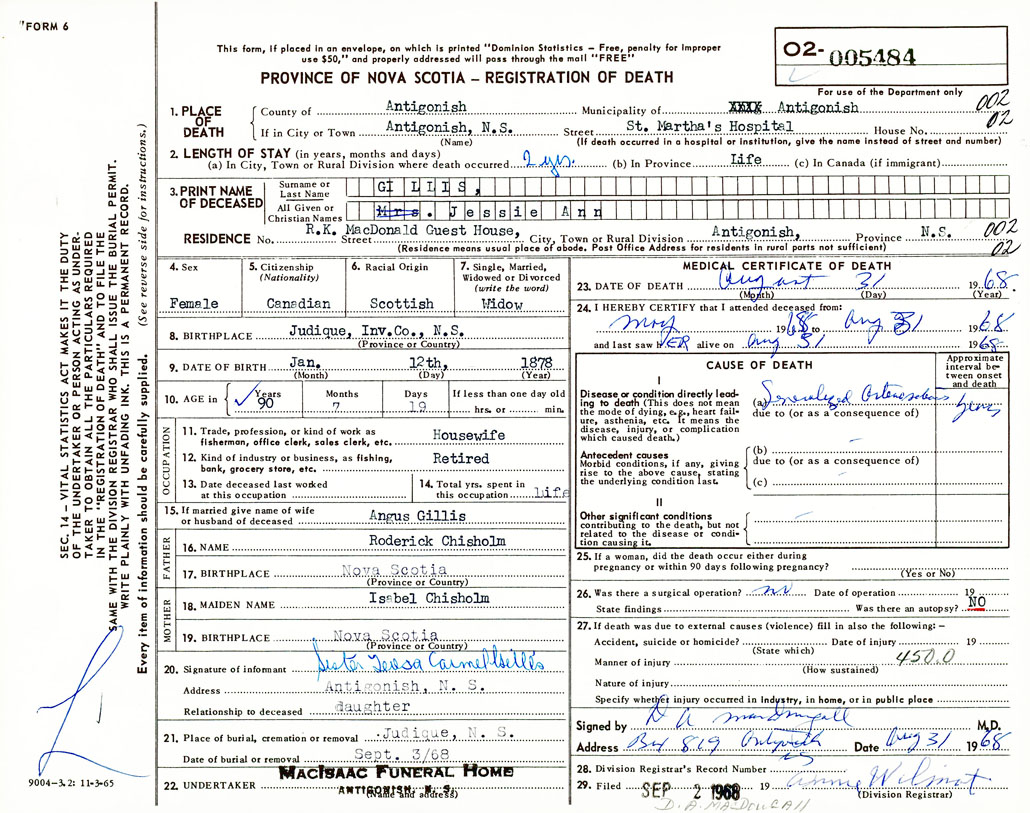 "FORM 6
This form, if placed in an envelope, on which is printed "Dominion Statistics – Free, penalty for improper
use $50," and properly addressed will pass through the mail "FREE"
PROVINCE OF NOVA SCOTIA – REGISTRATION OF DEATH
O2- 005484
For use of the Department only
002
02
1. PLACE OF DEATH
County of Antigonish Municipality of XXXX Antigonish
If in City or Town Antigonish, N.S. Street St. Martha's Hospital House No.
(Name) (If death occurred in a hospital or institution, give the name instead of street and number)
2. LENGTH OF STAY (in years, months and days)
(a) In City, Town or Rural Division where death occurred 2 yrs. (b) In Province Life (c) In Canada (if immigrant)
3. PRINT NAME OF DECEASED
Surname or Last Name GILLIS,
All Given or Christian Names Mrs. Jessie Ann
RESIDENCE No. R.K. MacDonald Guest House, Street City, Town or Rural Division Antigonish, Province N.S.
(Residence means usual place of abode. Post Office Address for residents in rural parts not sufficient)
002
02
4. Sex
Female
5. Citizenship
(Nationality)
Canadian
6. Racial Origin
Scottish
7. Single, Married,
Widowed or Divorced
(write the word)
Widow
8. BIRTHPLACE Judique, Inv.Co., N.S.
(Province or Country)
9. DATE OF BIRTH Jan. 12th, 1878
(Month) (Day) (Year)
10. AGE in Years 90 Months 7 Days 19 If less than one day old
hrs. or min.
OCCUPATION
11. Trade, profession, or kind of work as
fisherman, office clerk, sales clerk, etc. Housewife
12. Kind of industry or business, as fishing,
bank, grocery store, etc. Retired
13. Date deceased last worked
at this occupation
14. Total yrs. spent in
this occupation life
15. If married give name of wife
or husband of deceased Angus Gillis
FATHER
16. NAME Roderick Chisholm
17. BIRTHPLACE Nova Scotia
(Province or Country)
MOTHER
18. MAIDEN NAME Isabel Chisholm
19. BIRTHPLACE Nova Scotia
(Province or Country)
20. Signature of informant Sister Teresa Carmel Gillis
Address Antigonish, N. S.
Relationship to deceased daughter
21. Place of burial, cremation or removal Judique, N. S.
Date of burial or removal Sept. 3/68
22. UNDERTAKER MACISAAC FUNERAL HOME
ANTIGONISH, N. S.
(Name and address)
MEDICAL CERTIFICATE OF DEATH
23. DATE OF DEATH August 31 1968.
(Month) (Day) (Year)
24. I HEREBY CERTIFY that I attended deceased from:
May 1968 to Aug 31 1968
and last saw HER alive on Aug 31 1968
CAUSE OF DEATH
Approximate
interval be-
tween onset
and death
I
Disease or condition directly lead-
ing to death (This does not mean
the mode of dying, e.g., heart fail-
ure, asthenia, etc. It means the
disease, injury, or complication
which caused death.)
(a) Generalized Arteriosclerosis years
due to (or as a consequence of)
Antecedent causes
Morbid conditions, if any, giving
rise to the above cause, stating
the underlying condition last.
(b)
due to (or as a consequence of)
(c)
II
Other significant conditions
contributing to the death, but not
related to the disease or condi-
tion causing it.
25. If a woman, did the death occur either during
pregnancy or within 90 days following pregnancy?
(Yes or No)
26. Was there a surgical operation? no Date of operation 19
State findings Was there an autopsy? NO
27. If death was due to external causes (violence) fill in also the following: –
Accident, suicide or homicide? Date of injury 19
(State which)
Manner of injury 450.0
(How sustained)
Nature of injury
Specify whether injury occurred in Industry, in home, or in public place
Signed by D A MacDougall M.D.
Address Box 819 Antigonish NS Date Aug 31 1968
28. Division Registrar's Record Number
29. Filed SEP 2 1968 19 Annie Wilmot
(Division Registrar)
D. A. MACDOUGALL
SEC. 14 – VITAL STATISTICS ACT MAKES IT THE DUTY
OF THE UNDERTAKER OR PERSON ACTING AS UNDER-
TAKER TO OBTAIN ALL THE PARTICULARS REQUIRED
IN THE "REGISTRATION OF DEATH" AND TO FILE THE
SAME WITH THE DIVISION REGISTRAR WHO SHALL ISSUE THE BURIAL PERMIT.
WRITE PLAINLY WITH UNFADING INK. THIS IS A PERMANENT RECORD.
Every item of information should be carefully supplied. (See reverse side for instructions.)
9004-3.2: 11-3-65